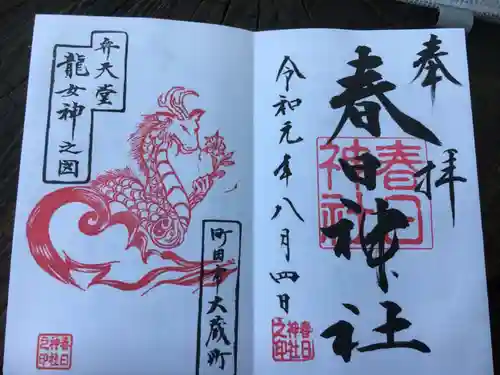 奉拝
春日神社
春日
神社
令和元年八月四日
春日
神社
之印
弁天堂
龍女神之図
町田市大蔵町
春日
神社
之印